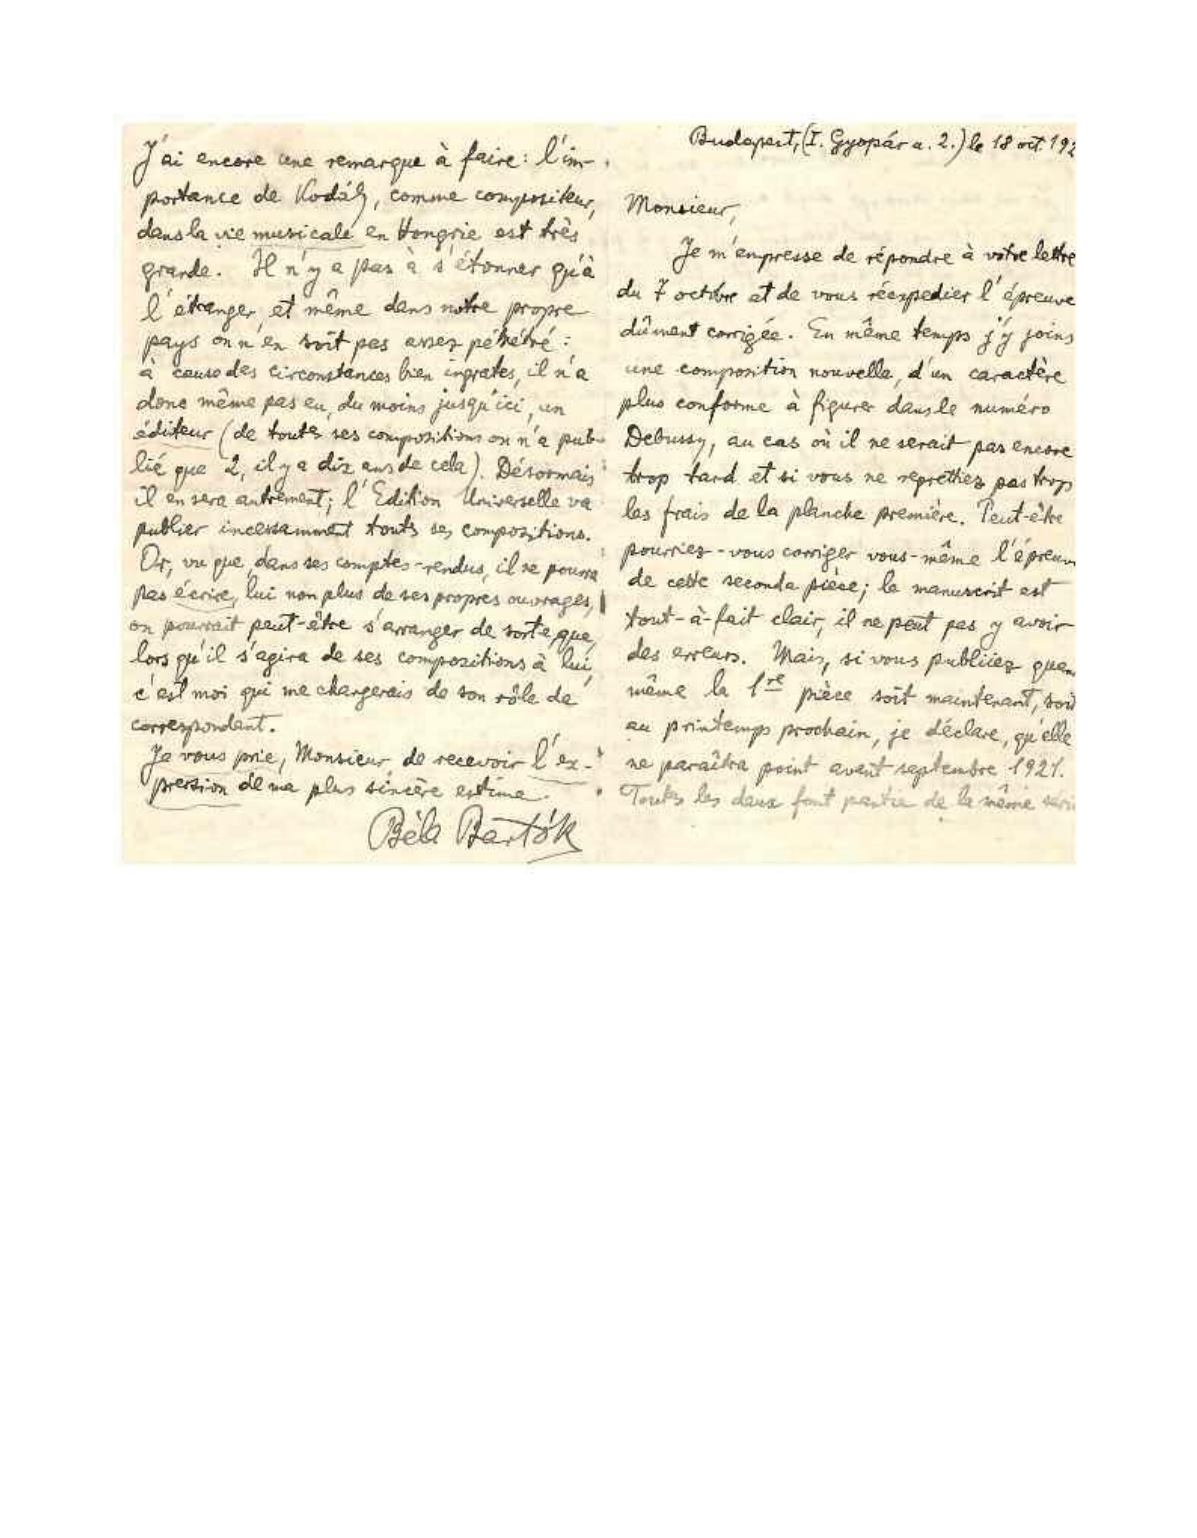 J'ai encore une remarque à faire: l'im-
portance de Kodály, comme compositeur,
dans la vie musicale en Hongrie est très
grande. Il n'y a pas à s'étonner qu'à
l'étranger, et même dans notre propre
pays on n'en soit pas assez pénétré:
à cause des circonstances bien ingrates, il n'a
donc même pas eu, du moins jusqu'ici, un
éditeur (de toutes ses compositions on n'a pub-
lié que 2, il y a dix ans de cela). Désormais
il en sera autrement; l'Edition Universelle va
publier incessamment touts ses compositions.
Or, vu que, dans ses comptes-rendus, il ne pourra
pas écrire, lui non plus de ses propres ouvrages,
on pourrait peut-être s'arranger de sorte que,
lorsqu'il s'agira de ses compositions à lui,
c'est moi qui me chargerais de son rôle de
correspondent.
Je vous prie, Monsieur, de recevoir l'ex-
pression de ma plus sincère estime.
Béla Bartók
Budapest, (I. Gyopár u. 2.) le 18 oct. 192
Monsieur,
Je m'empresse de répondre à votre lettre
du 7 octobre et de vous réexpedier l'épreuve
dûment corrigée. En même temps j'y joins
une composition nouvelle, d'un caractère
plus conforme à figurer dans le numéro
Debussy, au cas où il ne serait pas encore
trop tard et si vous ne regrettiez pas trop
les frais de la planche première. Peut-être
pourriez-vous corriger vous-même l'épreuv
de cette seconda pièce; le manuscrit est
tout-à-fait clair, il ne peut pas y avoir
des erreurs. Mais, si vous publiiez quan
même la 1re pièce soit maintenant, soit
au printemps prochain, je déclare, qu'elle
ne paraîtra point avant septembre 1921.
Toutes les deux font partie de la même séri